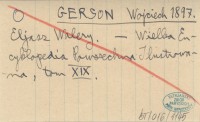 O GERSON Wojciech 1897.
Eljasz Walery. — Wielka En-
cyclopedia Powszechna Ilustrowa-
na, tom XIX.